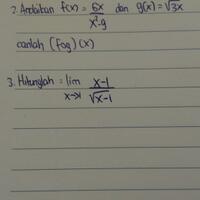 2. Andaikan f(x) = 6x / x² - 9 dan g(x) = √3x
carilah (fog) (x)
3. Hitunglah = lim x→1 x-1 / √x-1